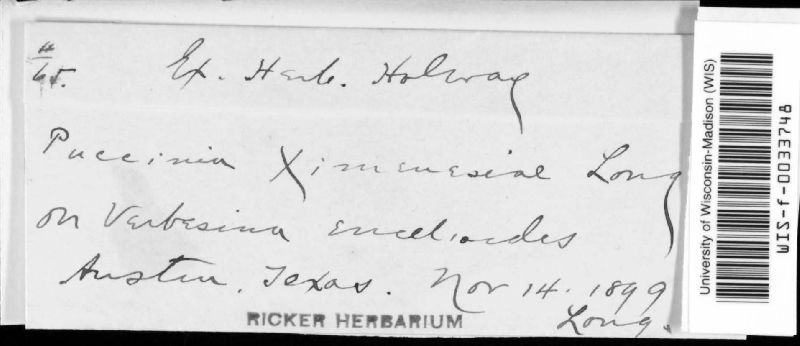 #
65. Ex. Herb. Holway
Puccinia Ximenesiae Long
on Verbesina encelioides
Austin, Texas. Nov 14. 1899
Long.
RICKER HERBARIUM
University of Wisconsin-Madison (WIS)
WIS-f-0033748